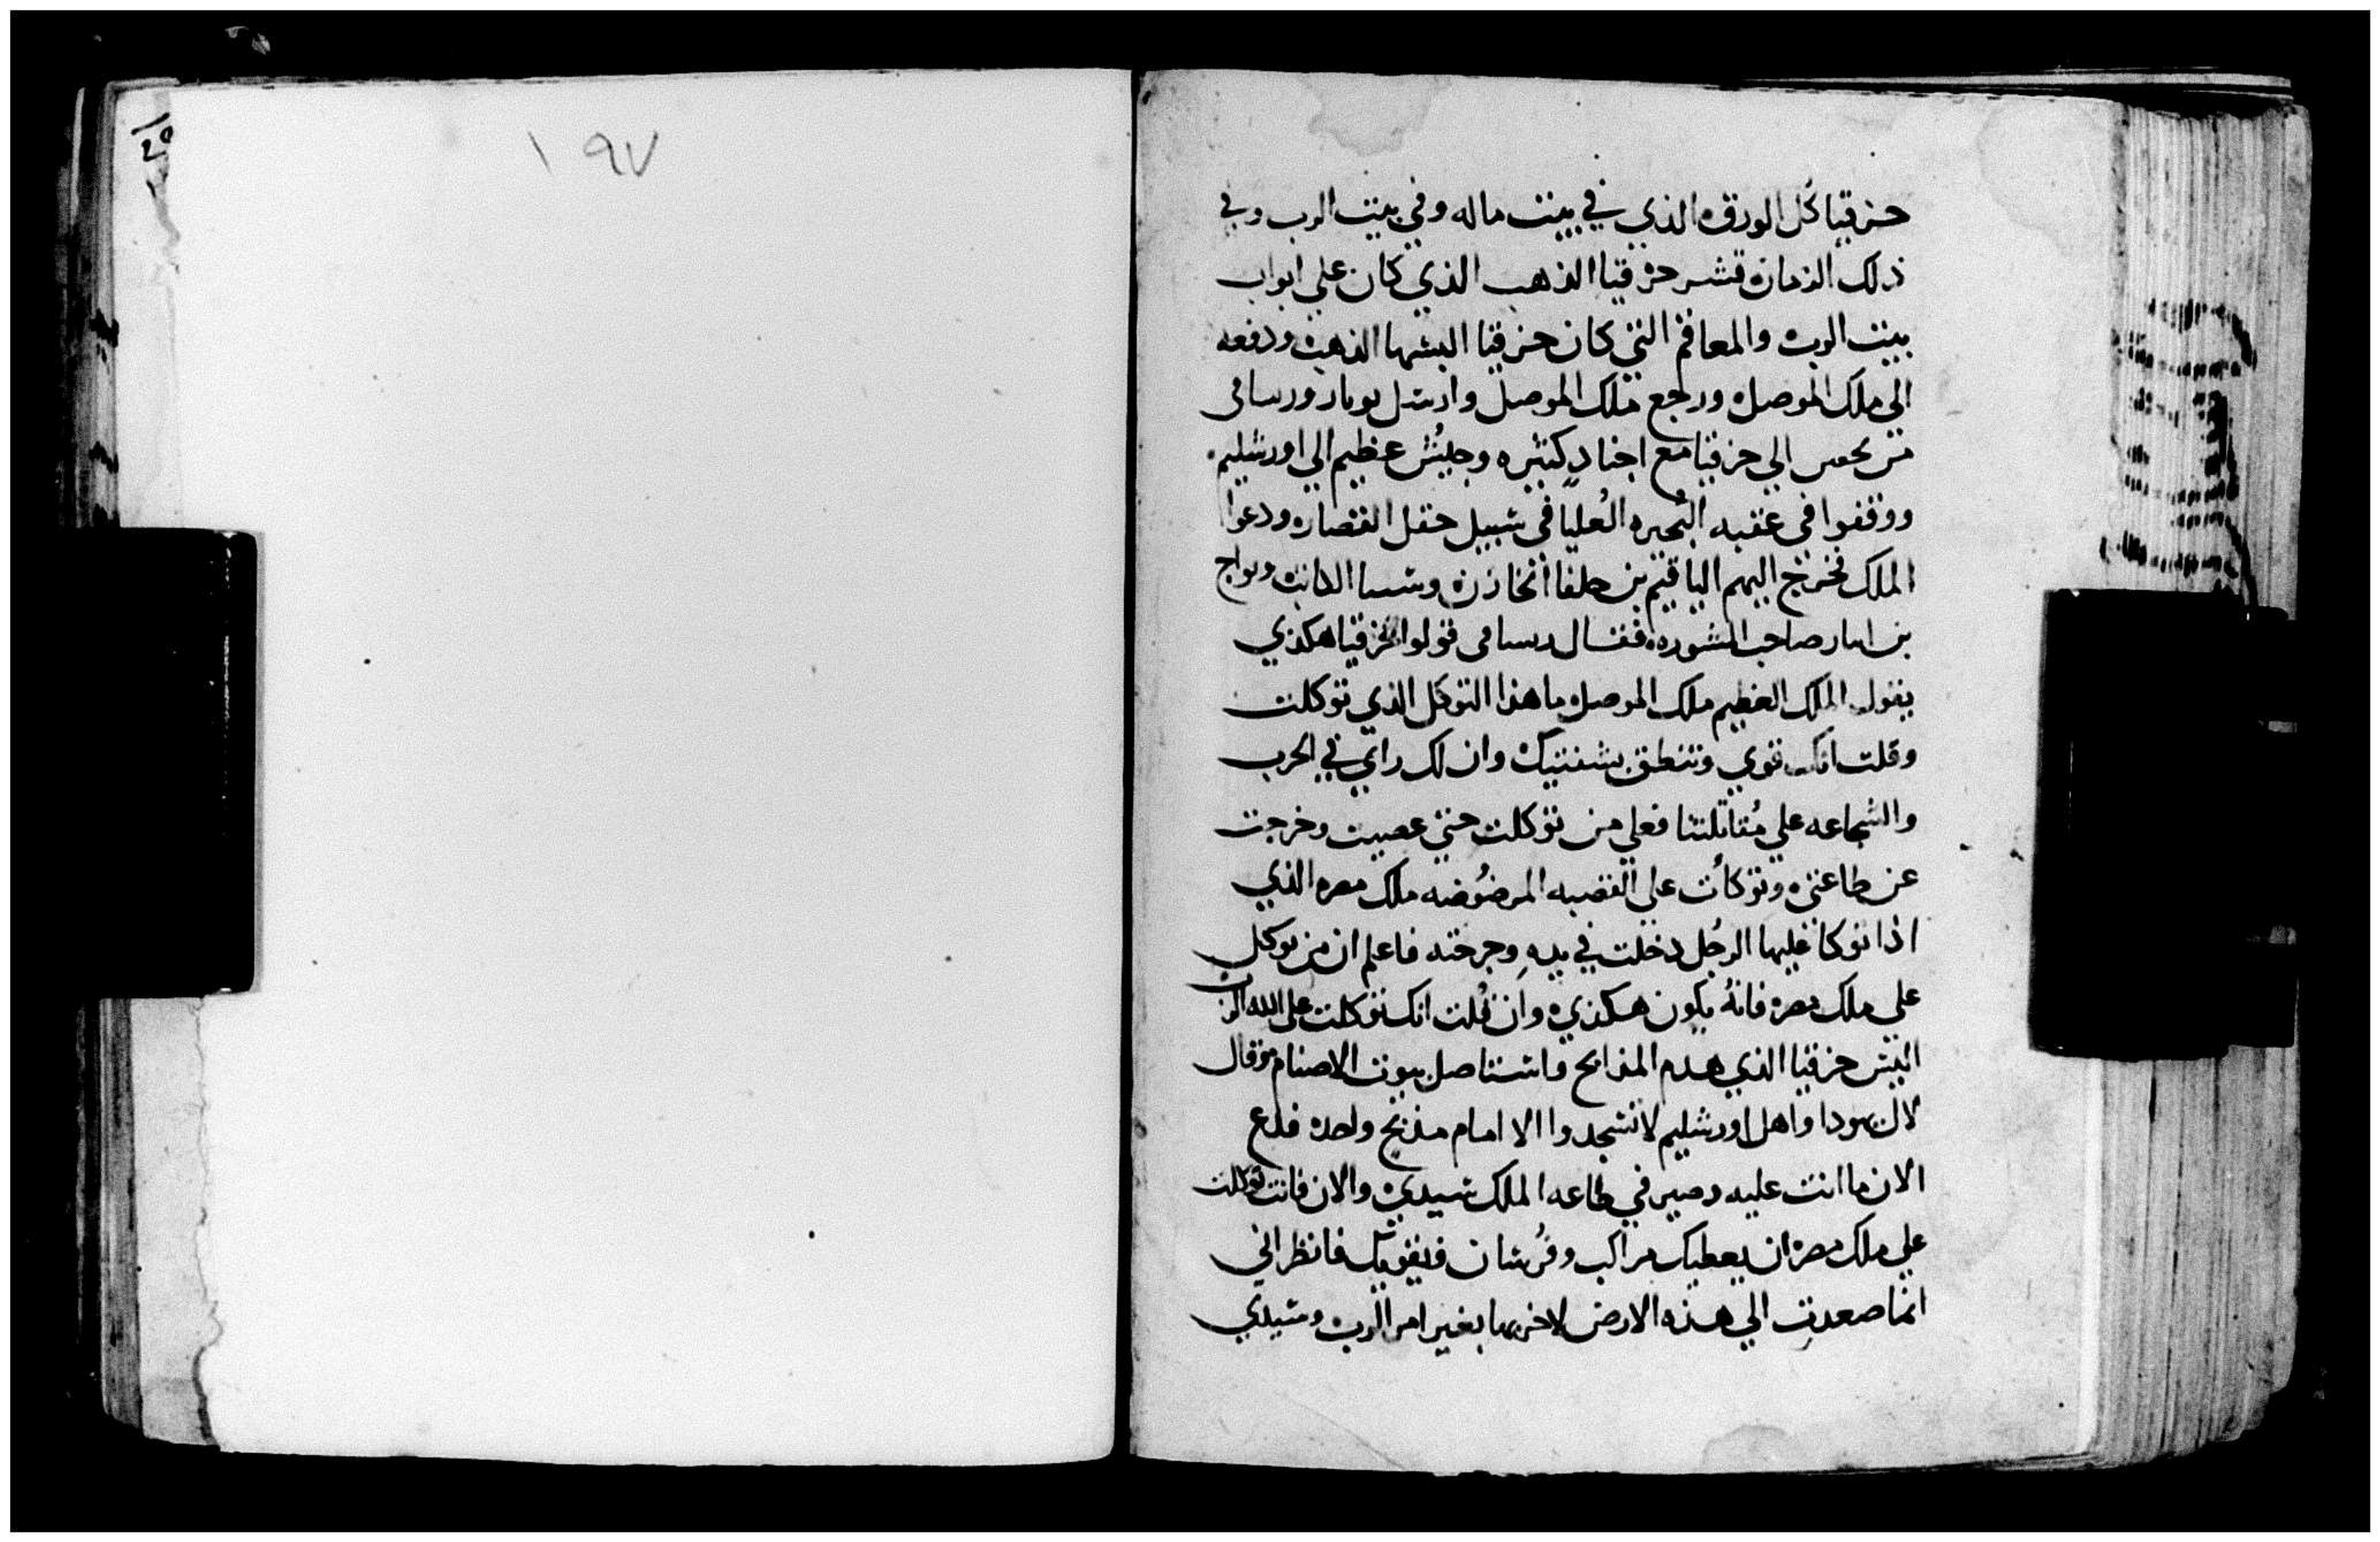 ١٩٧
حزقيا كل الورق الذي في بيت ماله وفي بيت الرب وفي
ذلك الزمان قشر حزقيا الذهب الذي كان علي ابواب
بيت الرب والمعاقم التي كان حزقيا البسها الذهب ودفعه
الي ملك الموصل ورجع ملك الموصل وارسل ورساقى
الي حزقيا مع اجناد كثيره وجيش عظيم الي اورشليم
ووقفوا في عقبه البحيره العليا في سبيل حقل القصاره ودعوا
الملك فخرج اليهم الياقيم بن حلفا الخازن الكاتب ويواخ
بن صاحب المشوره فقال رساقى قولوا لحزقيا هكذي
يقول الملك العظيم ملك الموصل ما هذا التوكل الذي توكلت
وقلت انك قوي وتنطق بشفتيك وان لك راي في الحرب
والشجاعه علي مقاتلتنا فعلي من توكلت حتي عصيت وخرجت
عن طاعتي وتوكأت علي القصبه المرضوضه ملك مصر الذي
اذا توكا عليها الرجل دخلت في يده وجرحته فاعلم ان من توكل
علي ملك مصر فانه يكون هكذي وان قلت انك توكلت علي الله الرب
اليس حزقيا الذي هدم المذابح واستاصل بيوت الاصنام وقال
لال يهودا واهل اورشليم لا تسجدوا الا امام مذبح واحد فدع
الان ما انت عليه وصير في طاعه الملك سيدي والان فانت توكلت
علي ملك مصر ان يعطيك مراكب وفرسان فيقويك فانظر اني
انما صعدت الي هذه الارض لاخربها بغير امر الرب وسيدي